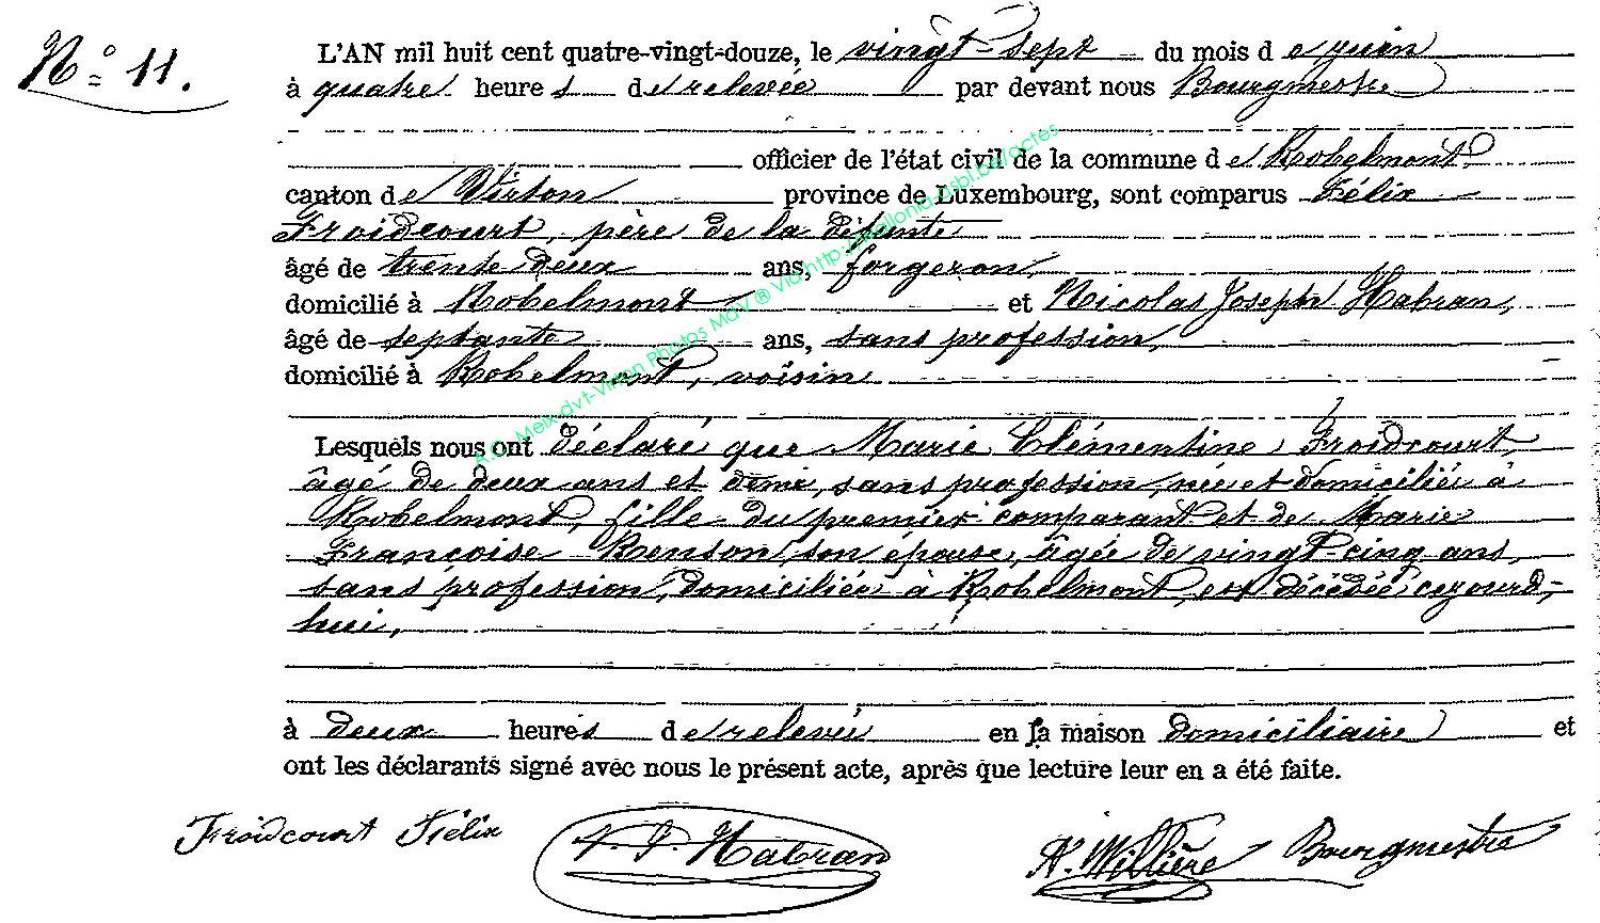 N° 11.
L'AN mil huit cent quatre-vingt-douze, le vingt-sept du mois de juin
à quatre heures de relevée par devant nous Bourgmestre
officier de l'état civil de la commune de Robelmont
canton de Virton province de Luxembourg, sont comparus Félix
Froidcourt, père de la défunte
âgé de trente deux ans, forgeron,
domicilié à Robelmont et Nicolas Joseph Habran,
âgé de septante ans, sans profession,
domicilié à Robelmont, voisin
Lesquels nous ont déclaré que Marie Clémentine Froidcourt,
âgé de deux ans et demi, sans profession, née et domiciliée à
Robelmont, fille du premier comparant et de Marie
Françoise Renson, son épouse, âgée de vingt-cinq ans,
sans profession, domiciliée à Robelmont, est décédée cejourd-
hui,
à deux heures de relevée en la maison domiciliaire et
ont les déclarants signé avec nous le présent acte, après que lecture leur en a été faite.
Froidcourt Félix
Habran
Willière Bourgmestre
A.C. Meix-dvt-Virton Photos MdV ® Via http://wallonia-asbl.be/actes